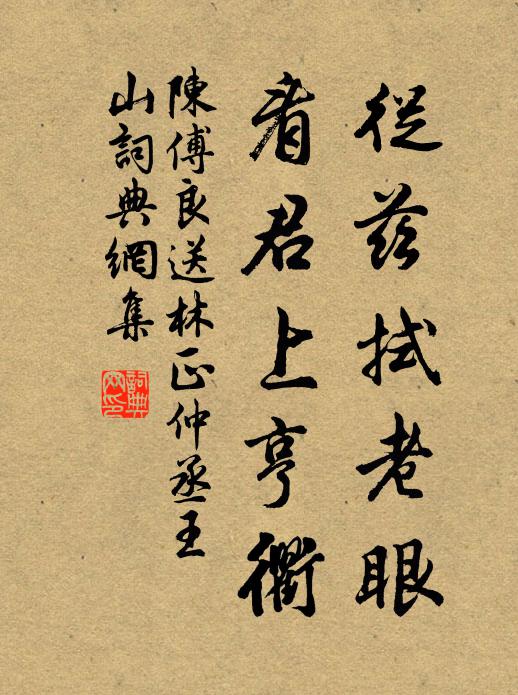 從茲拭老眼
看君上亨衢
陳傅良送林正仲丞王
山詞典網集
詞典網印